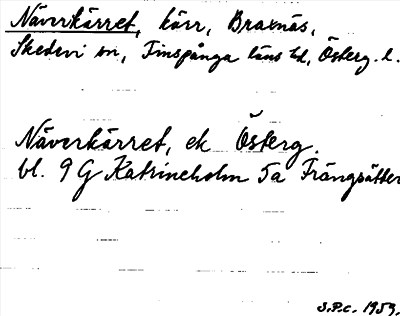 Näverkärret, kärr, Braxnäs,
Skedevi sn, Finspånga läns hd, Österg. l.
Näverkärret, ek Österg.
bl. 9 G Katrineholm 5a Frängsätter
S.P.c. 1959.